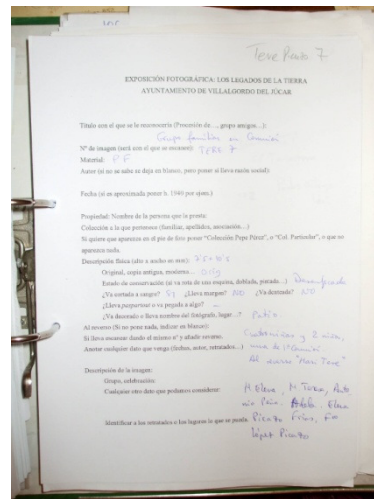 Tere Picazo 7
EXPOSICIÓN FOTOGRÁFICA: LOS LEGADOS DE LA TIERRA
AYUNTAMIENTO DE VILLALGORDO DEL JÚCAR
Título con el que se la reconocería (Procesión de…, grupo amigos…):
Grupo familiar en Comunión
Nº de imagen (será con el que se escanee): TERE 7
Material: PF
Autor (si no se sabe se deja en blanco, pero poner si lleva razón social):
Fecha (si es aproximada poner h. 1940 por ejem.)
Propiedad: Nombre de la persona que la presta:
Colección a la que pertenece (familias, apellidos, asociación…)
Si quiere que aparezca en el pie de foto poner "Colección Pepe Pérez", o "Col. Particular", o que no
aparezca nada.
Descripción física (alto x ancho en mm):
Original, copia antigua, moderna… Orig
Estado de conservación (si es rota de una esquina, doblada, picada…)
¿Va cortada a sangre? SI ¿Lleva margen? NO ¿Va dentada? NO
¿Lleva paspartour o va pegada a algo? –
¿Va decorado o lleva nombre del fotógrafo, lugar…? Patio
Al reverso (Si no pone nada, indicar en blanco):
Si lleva escanear dando el mismo nº y añade reverso.
Anotar cualquier dato que venga (fechas, autor, retratados…)
Descripción de la imagen:
Grupo, celebración:
Cualquier otro dato que podamos considerar: M. Elena, M Teresa, Anto
nio Peño, Adela, Elena
Identificar a los retratados o los lugares lo que se pueda. Picazo Frías, Fco
López Picazo